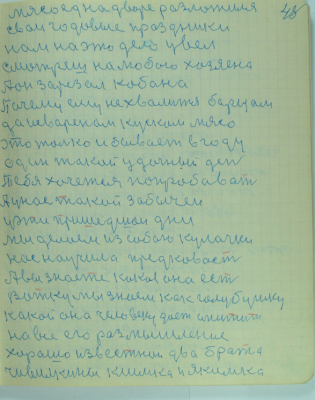 48
мясоед на дворе разложиля
сваи годовые праздники
нам на это дело увел
смотреш на любого хозяена
Аон зарезал кобана
Почему ему не хвалится барщам
да сваренам куском мясо
это только и бывает в году
один такой удачный ден
Тебя хочется попробават
Аунас такой забычеи
уже пришедшаи дни
мы делаем из собою кулачки
нас научила предковаст
Авы знаете какая она ест
Вотку мы знаем как голубушку
какой она человеку дает
на вие его размышление
хорошо известной два брата
кишка и Якимка